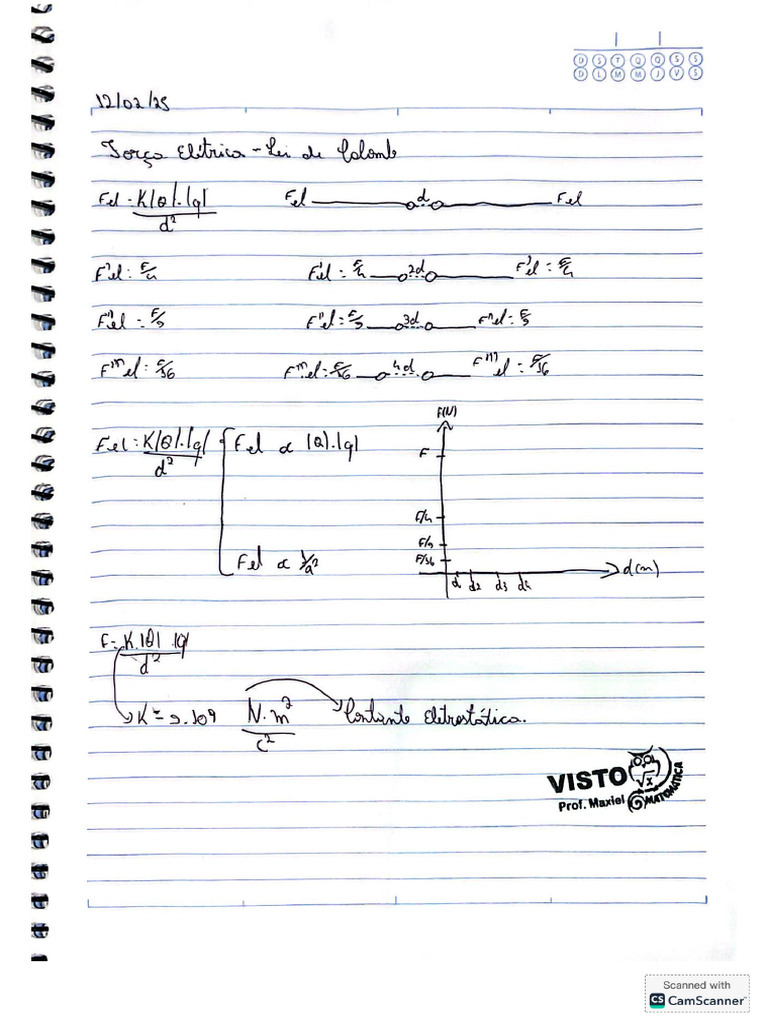 D S T Q Q S S
D L M M J V S
12/02/25
Força Elétrica - Lei de Colomb
Fel = K|Q|.|q| / d²
Fel d Fel
F'el = F/4 F'el = F/4 2d F'el = F/4
F''el = F/9 F''el = F/9 3d F''el = F/9
F'''el = F/16 F'''el = F/16 4d F'''el = F/16
F(N)
Fel = K|Q|.|q| / d² Fel α |Q|.|q|
F
F/4
F/9
F/16
Fel α 1/d²
d(m)
d d2 d3 d4
F = K.|Q|.|q| / d²
K = 9.10⁹ N.m² / C² Contante Eletrostática.
VISTO
Prof. Maxiel
√x
MATOMÁTICA
Scanned with
CS CamScanner